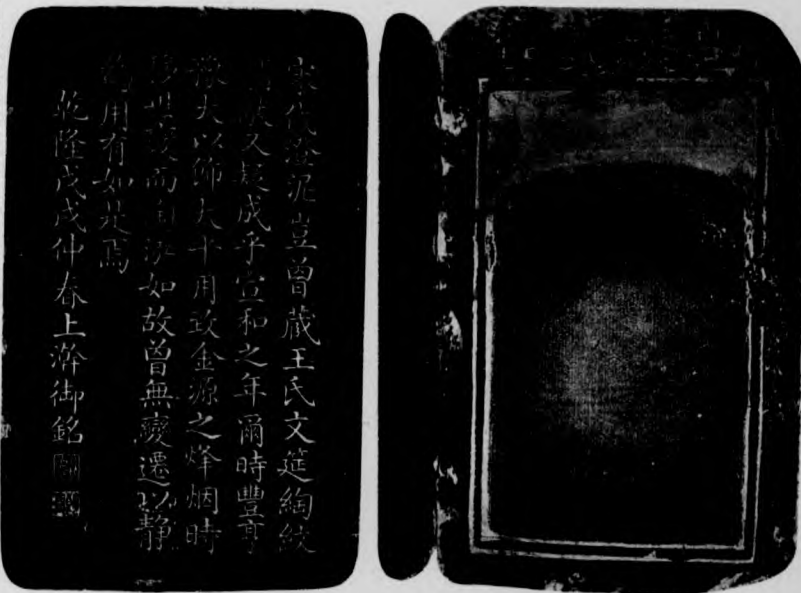 宋代澄泥豈曾藏王氏文筵綯紋
又疑成乎宣和之年爾時豐亨
豫大以飾太平用致金源之烽烟時
移世變而如故曾無變遷以靜
為用有如是焉
乾隆戊戌仲春上澣御銘